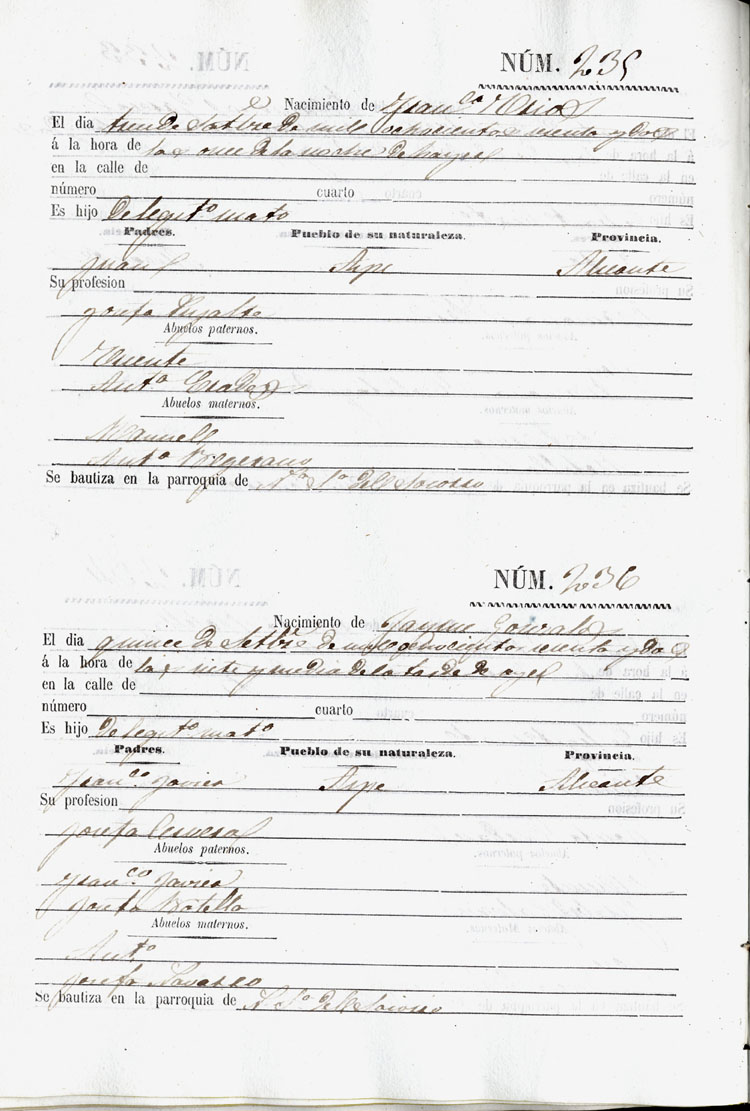 NÚM. 235
Nacimiento de Fran.co Mira
El dia de Setbre de mill ochocientos y dos
á la hora de las once de la noche de
en la calle de
número cuarto
Es hijo de legit.o mat.o
Padres. Pueblo de su naturaleza. Provincia.
Juan Aspe Alicante
Su profesion
Josefa
Abuelos paternos.
Vicente
Ant.a
Abuelos maternos.
Manuel
Ant.a
Se bautiza en la parroquia de N.a S.a del Socorro
NÚM. 236
Nacimiento de Jayme
El dia quince de Setbre de mil ochocientos y dos
á la hora de las siete y media de la tarde de ayer
en la calle de
número cuarto
Es hijo de legit.o mat.o
Padres. Pueblo de su naturaleza. Provincia.
Fran.co Javier Aspe Alicante
Su profesion
Josefa
Abuelos paternos.
Fran.co Javier
Josefa Botella
Abuelos maternos.
Ant.o
Josefa Navarro
Se bautiza en la parroquia de N. S.a del Socorro